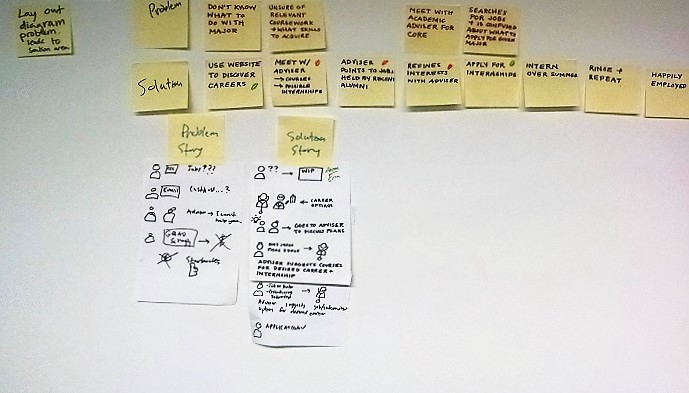 Lay out
diagram
problem.
leads to
Problem
DON'T KNOW
WHAT TO
DO WITH
MAJOR
UNSURE OF
RELEVANT
COURSEWORK
+ WHAT SKILLS
TO ACQUIRE
MEET WITH
ACADEMIC
ADVISER FOR
CORE
SEARCHES
FOR JOBS
+ IS CONFUSED
ABOUT WHAT TO
APPLY FOR GIVEN
MAJOR
Solution
USE WEBSITE
TO DISCOVER
CAREERS
MEET W/
ADVISER
→ COURSES
→ POSSIBLE
INTERNSHIPS
ADVISER
POINTS TO JOBS
HELD BY RECENT
ALUMNI
REFINES
INTERESTS
WITH ADVISER
APPLY FOR
INTERNSHIPS
INTERN
OVER SUMMER
RINSE +
REPEAT
HAPPILY
EMPLOYED
Problem
Story
Solution
Story
Jobs???
EMAIL
Adviser → I can't
help you..
GRAD
Starbucks
?? →
← CAREER
OPTIONS
→ GOES TO ADVISER
TO DISCUSS PLANS
ADVISER SUGGESTS COURSES
FOR DESIRED CAREER +
INTERNSHIP
Adviser suggests
options for desired career
APPLICATION